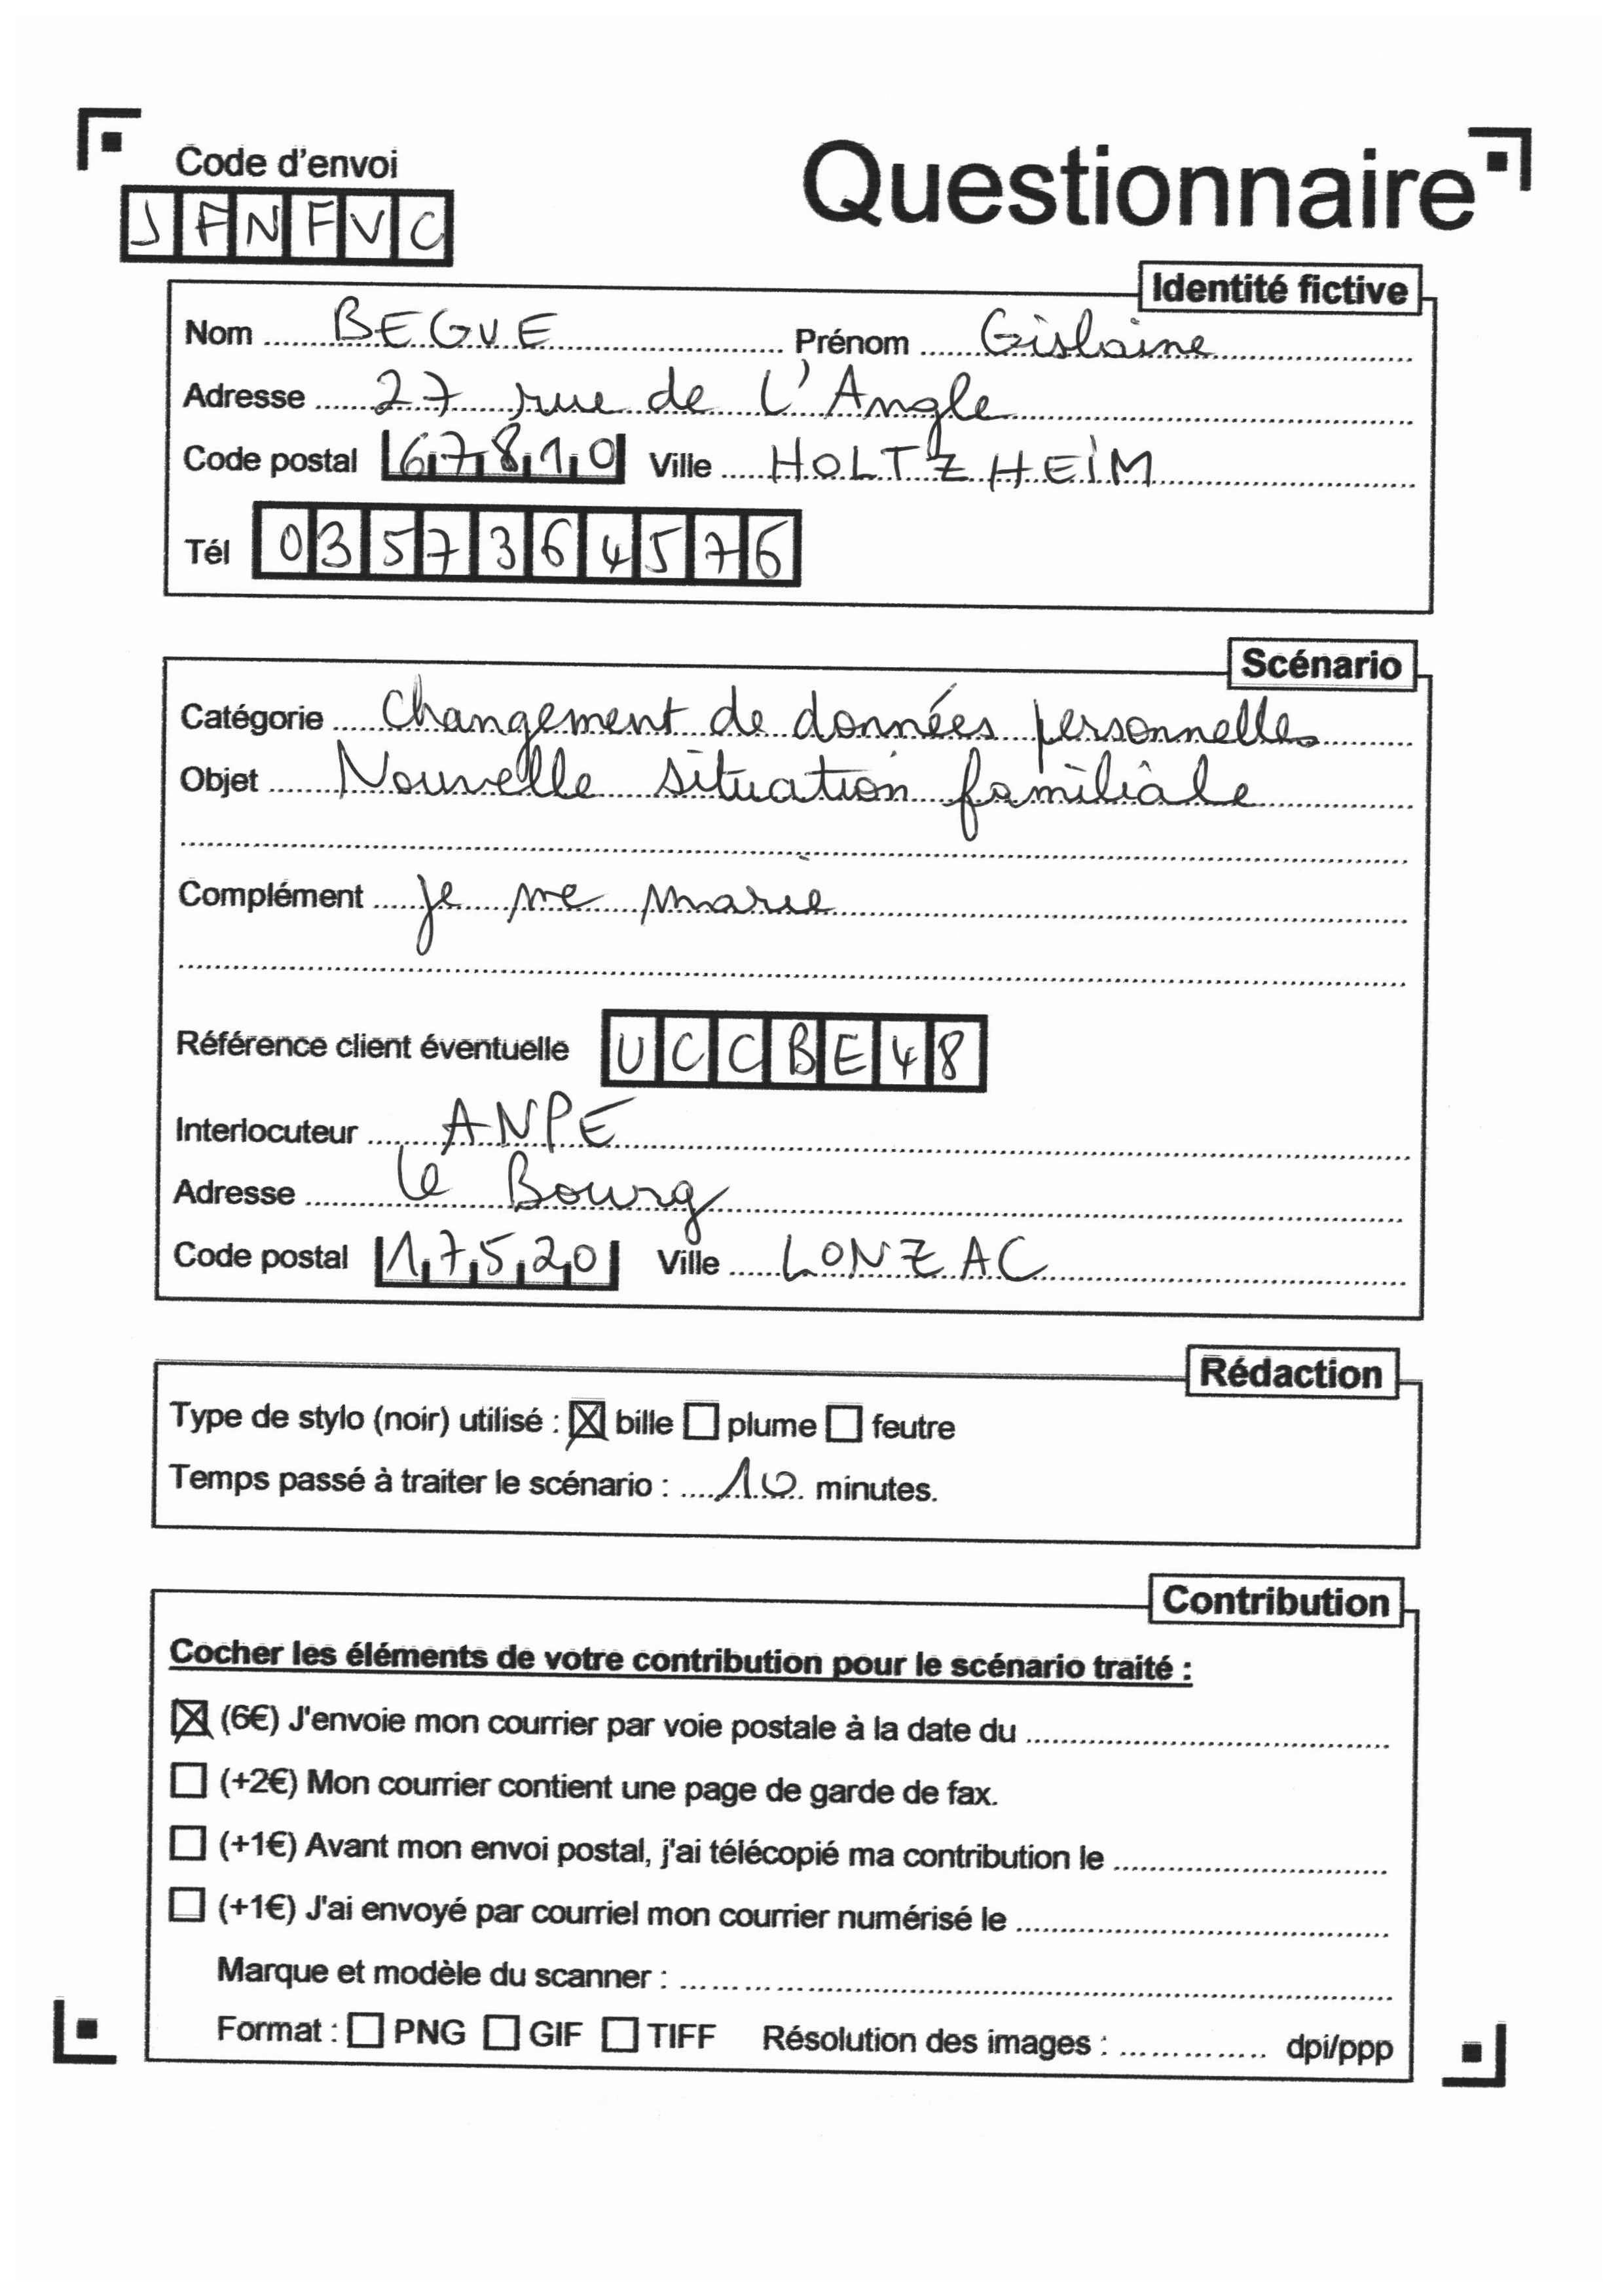 Code d'envoi
Questionnaire
JFNFVC
Identité fictive
Nom BEGUE Prénom Gislaine
Adresse 27 rue de L'Angle
Code postal 67810 Ville HOLTZHEIM
Tél 0357364576
Scénario
Catégorie Changement de données personnelles
Objet Nouvelle situation familiale
Complément je me marie
Référence client éventuelle UCCBE48
Interlocuteur ANPE
Adresse Le Bourg
Code postal 17520 Ville LONZAC
Rédaction
Type de stylo (noir) utilisé : ☒ bille ☐ plume ☐ feutre
Temps passé à traiter le scénario : 10 minutes.
Contribution
Cocher les éléments de votre contribution pour le scénario traité :
☒ (6€) J'envoie mon courrier par voie postale à la date du
☐ (+2€) Mon courrier contient une page de garde de fax.
☐ (+1€) Avant mon envoi postal, j'ai télécopié ma contribution le
☐ (+1€) J'ai envoyé par courriel mon courrier numérisé le
Marque et modèle du scanner :
Format : ☐ PNG ☐ GIF ☐ TIFF Résolution des images : dpi/ppp